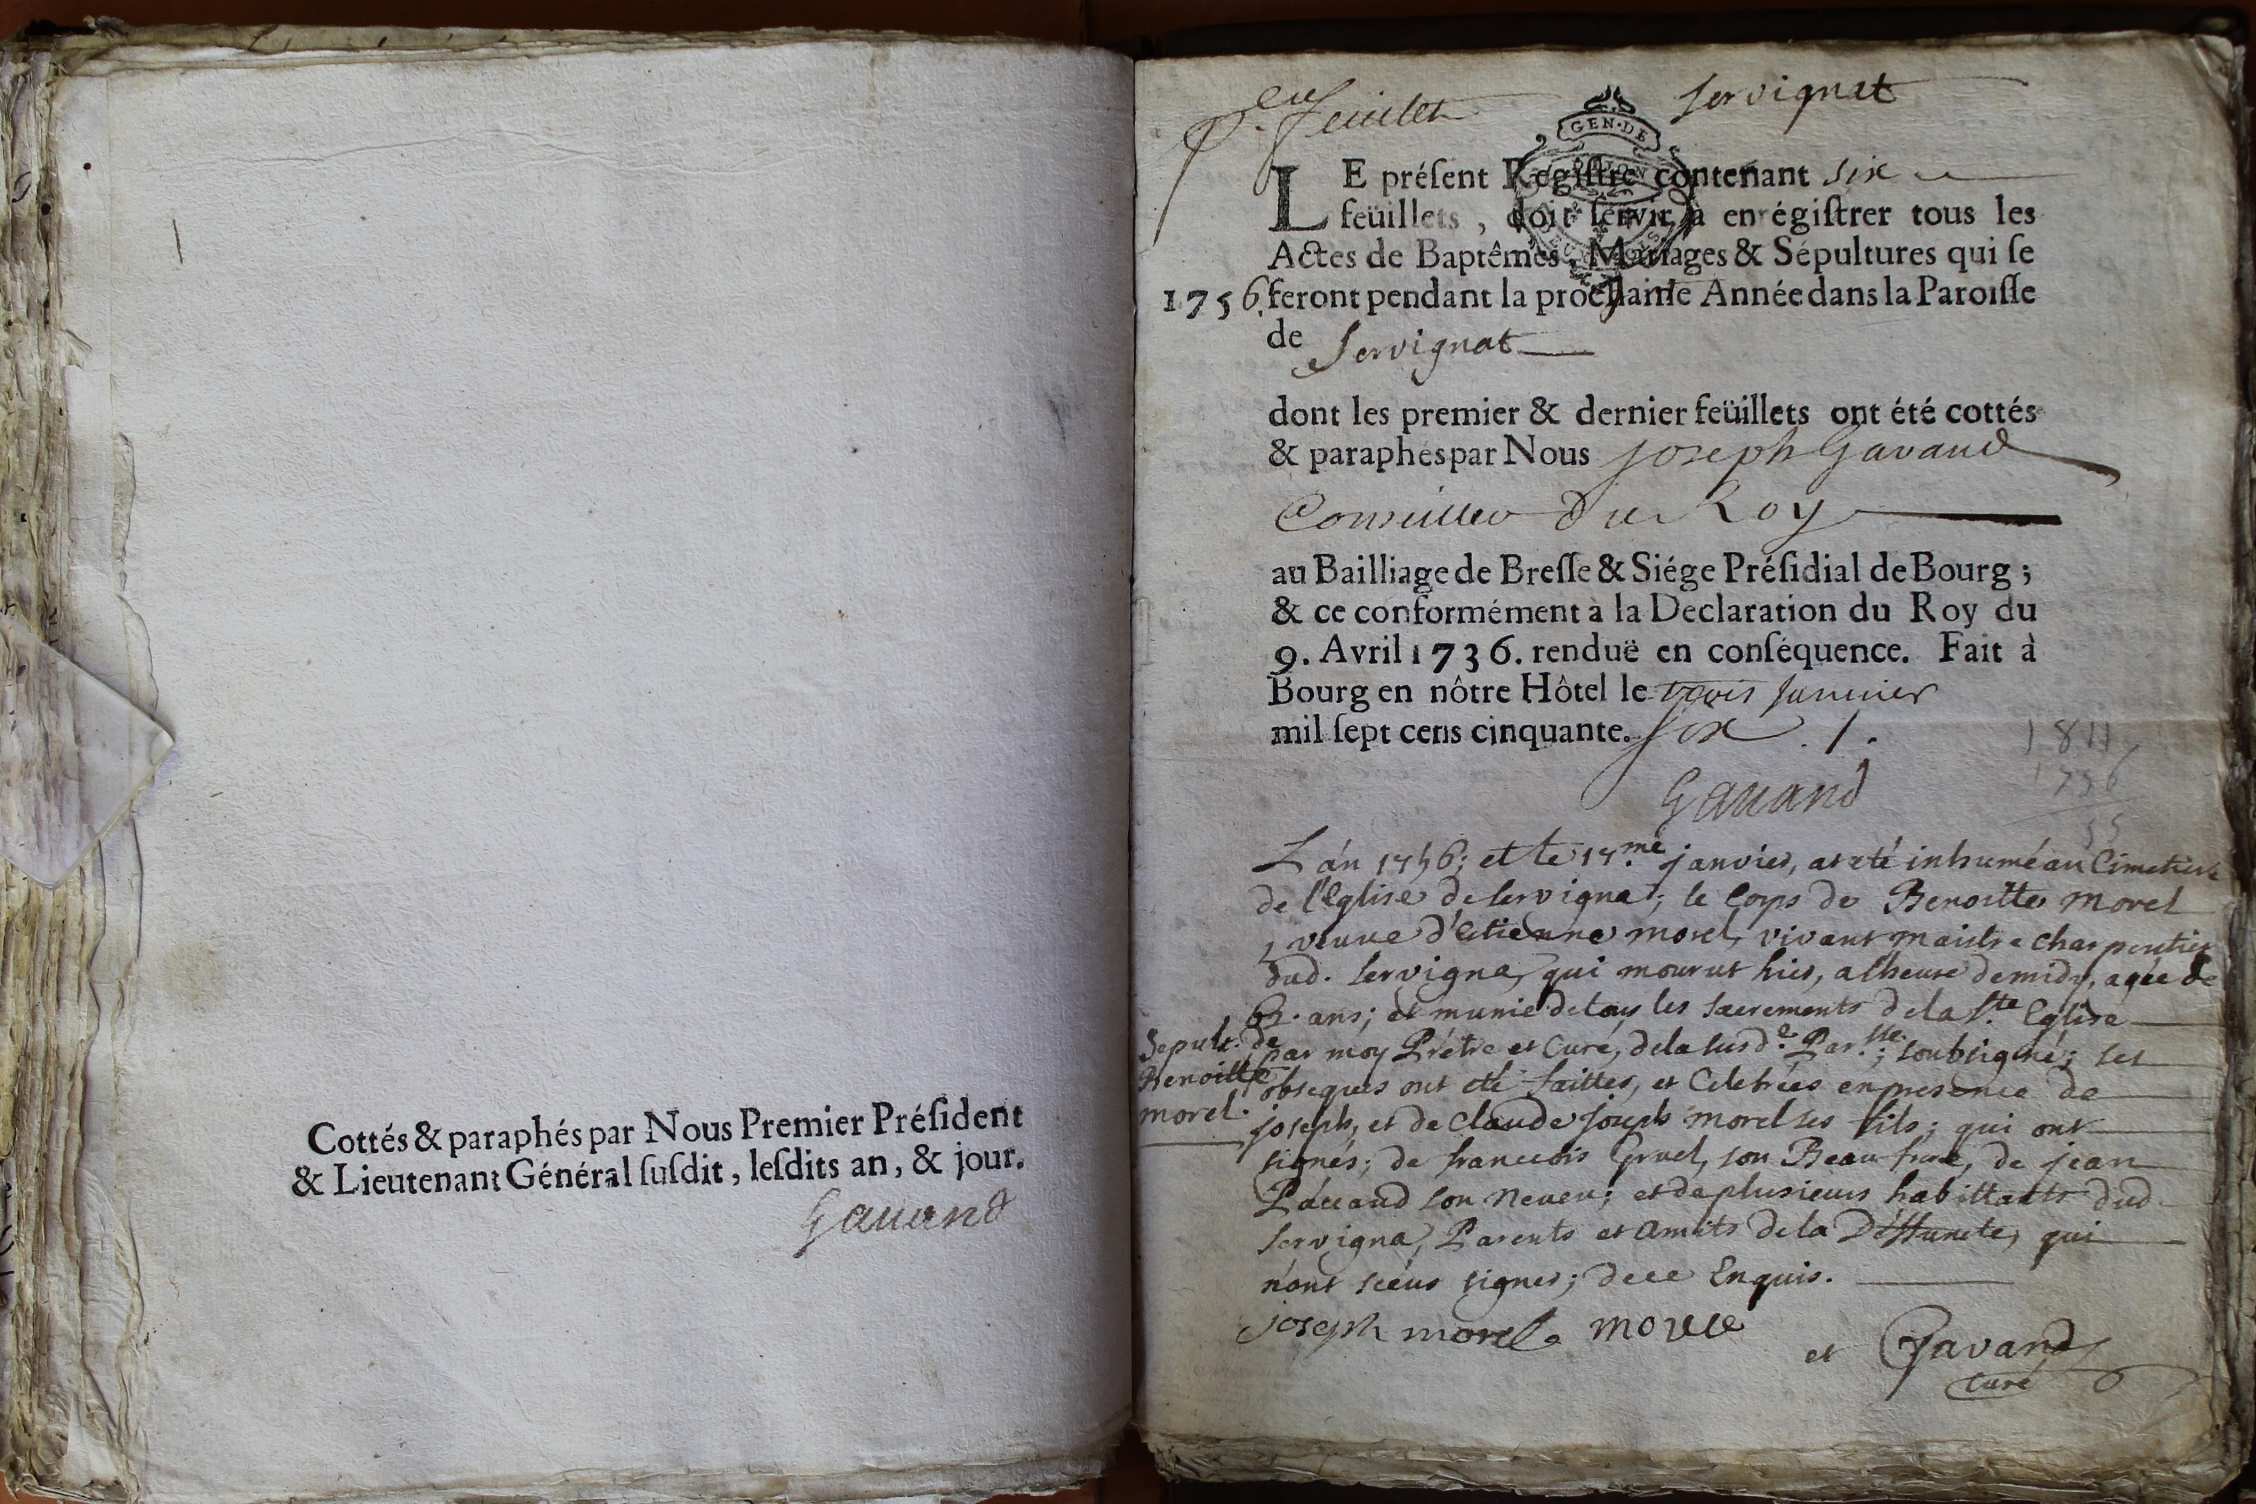 Cottés & paraphés par Nous Premier Préſident
& Lieutenant Général ſuſdit, leſdits an, & jour.
Gauand
P.er feuillet
Servignat
GEN·DE
LE préſent Regiſtre contenant six
feüillets, doit ſervir à enrégiſtrer tous les
Actes de Baptêmes, Mariages & Sépultures qui ſe
1756. feront pendant la prochaine Année dans la Paroiſſe
de Servignat
dont les premier & dernier feüillets ont été cottés
& paraphés par Nous joseph Gavand
Conseiller du Roy
au Bailliage de Breſſe & Siége Préſidial de Bourg;
& ce conformément à la Declaration du Roy du
9. Avril 1736. renduë en conſéquence. Fait à
Bourg en nôtre Hôtel le trois Janvier
mil ſept cens cinquante. six
Gauand
1811
1756
55
L'án 1756; et le 17.me janvier, at eté inhumé au Cimetiere
de l'Eglise de servigna; le Corps de Benoitte Morel
veuve d'etienne morel, vivant maistre charpentier
dud. servigna, qui mourut hier, a lheure de midy, agée de
ans; et munie de tous les sacrements de la s.te Eglise
par moy Prétre et Curé, de la susd.e Par.sse; soubsigné; ses
obseques ont eté faittes, et Celebrées en presence de
joseph, et de Claude joseph morel ses fils; qui ont
signés; de francois Gruel, son Beau frere, de jean
Pacaud son neveu; et de plusieurs habittants dud.
servigna, Parents et amits de la Deffuncte, qui
n'ont sceus signer; de ce Enquis.
Sepult. de
Benoitte
morel.
joseph morel morel
et Gavand
Curé